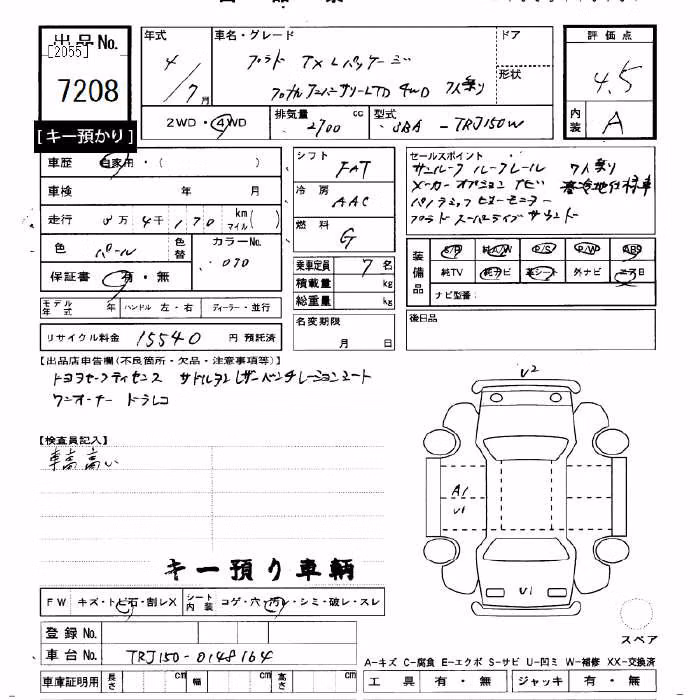 [2055]
出品No. 7208
[キー預かり]
年式 4/7月
車名・グレード プラド TX Lパッケージ
70thアニバーサリーLTD 4WD 7人乗り
ドア
形状
評価点 4.5
内装 A
2WD・4WD
排気量 2700 cc
型式 3BA-TRJ150W
車歴 自家用・( )
車検 年 月
走行 万 4千 170 km マイル( )
色 パール 色替 カラーNo. 070
保証書 有・無
シフト FAT
冷房 AAC
燃料 G
乗車定員 7名
積載量 kg
総重量 kg
セールスポイント
サンルーフ ルーフレール 7人乗り
メーカーオプションナビ 寒冷地仕様車
パノラミックビューモニター
プラド スーパーライブサウンド
装備品 S/R 純A/W P/S P/W ABS
純TV 純ナビ 革シート 外ナビ エアB
ナビ型番:
モデル年式 年 ハンドル 左・右 ディーラー・並行
リサイクル料金 15540 円 預託済
名変期限 月 日
後日品
【出品店申告欄(不良箇所・欠品・注意事項等)】
トヨタセーフティセンス サドルタンレザーベンチレーションシート
ワンオーナー ドラレコ
【検査員記入】
車高 高い
U2
A1
U1
U1
キー預り車輌
FW キズ・トビ石・割レX シート内装 コゲ・穴・汚レ・シミ・破レ・スレ
スペア
登録No.
車台No. TRJ150-0148164
A-キズ C-腐食 E-エクボ S-サビ U-凹ミ W-補修 XX-交換済
車庫証明用 長さ cm 幅 cm 高さ cm
工具 有・無 ジャッキ 有・無